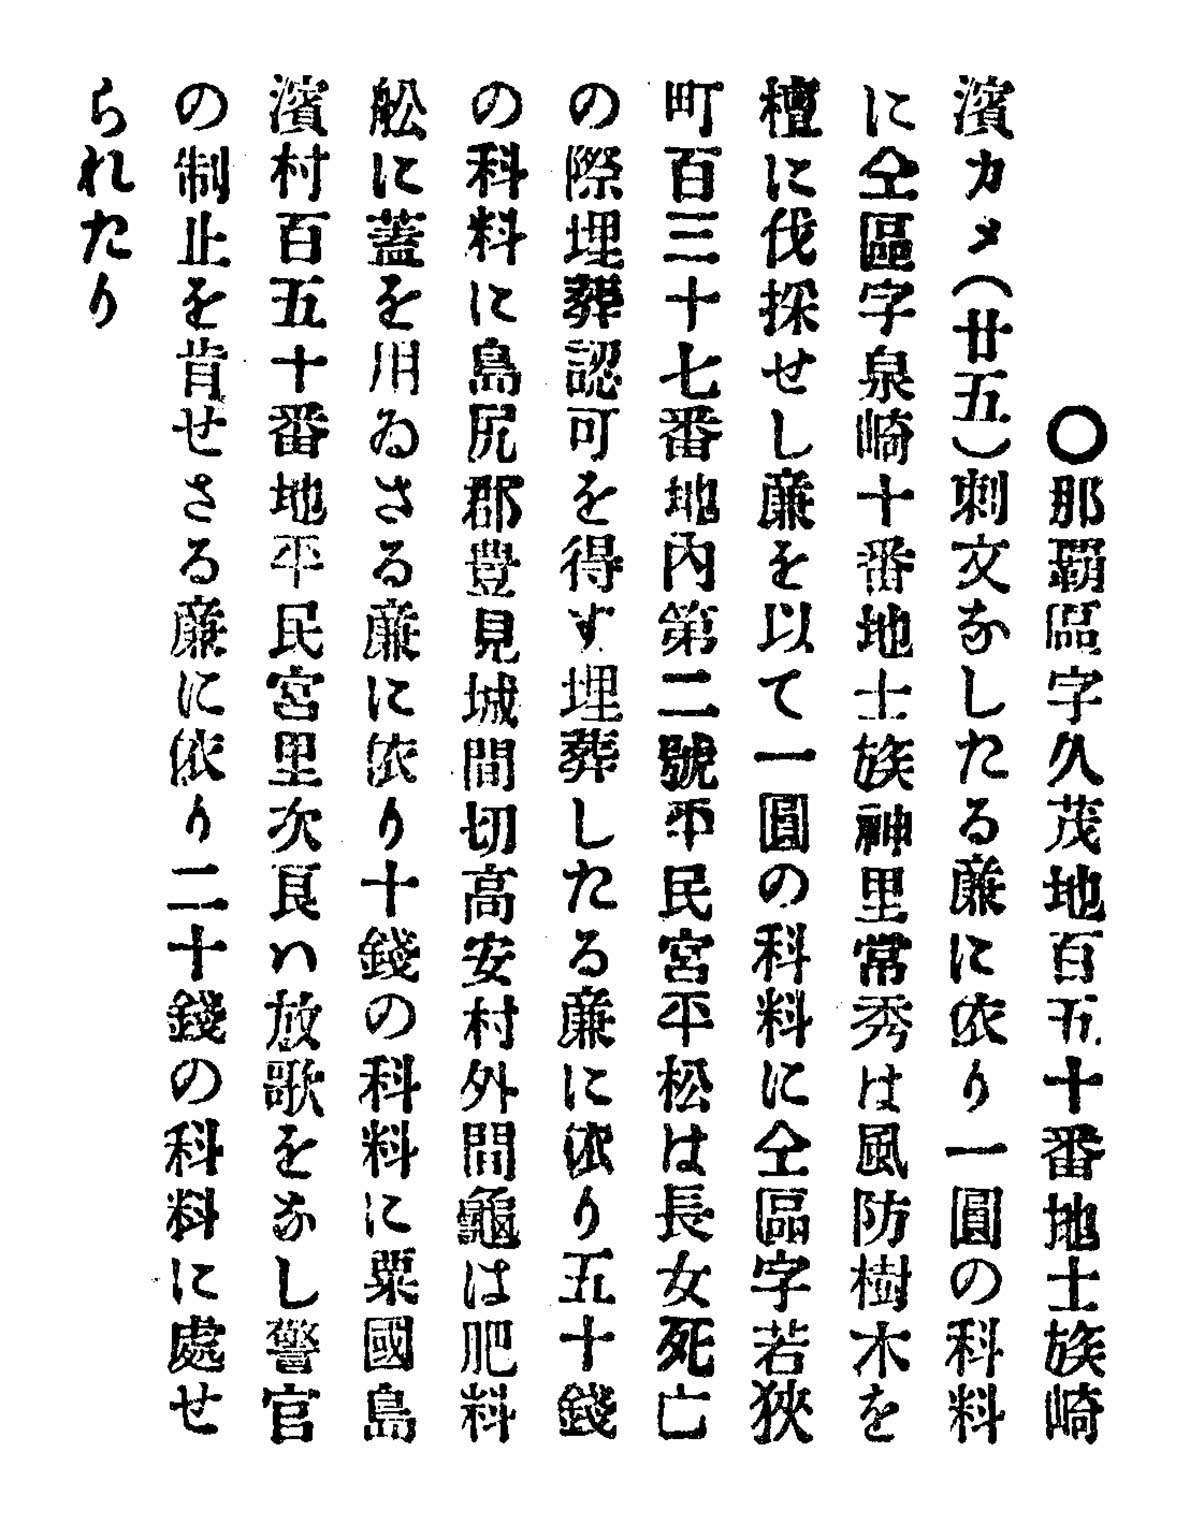 〇那覇區字久茂地百五十番地士族崎
濱カメ(廿五)刺文なしたる廉に依り一圓の科料
に仝區字泉崎十番地士族神里常秀は風防樹木を
檀に伐採せし廉を以て一圓の科料に仝區字若狹
町百三十七番地內第二號平民宮平松は長女死亡
の際埋葬認可を得す埋葬したる廉に依り五十錢
の科料に島尻郡豊見城間切高安村外間龜は肥料
舩に蓋を用ゐさる廉に依り十錢の科料に粟國島
濱村百五十番地平民宮里次良ハ放歌をなし警官
の制止を肯せさる廉に依り二十錢の科料に處せ
られたり